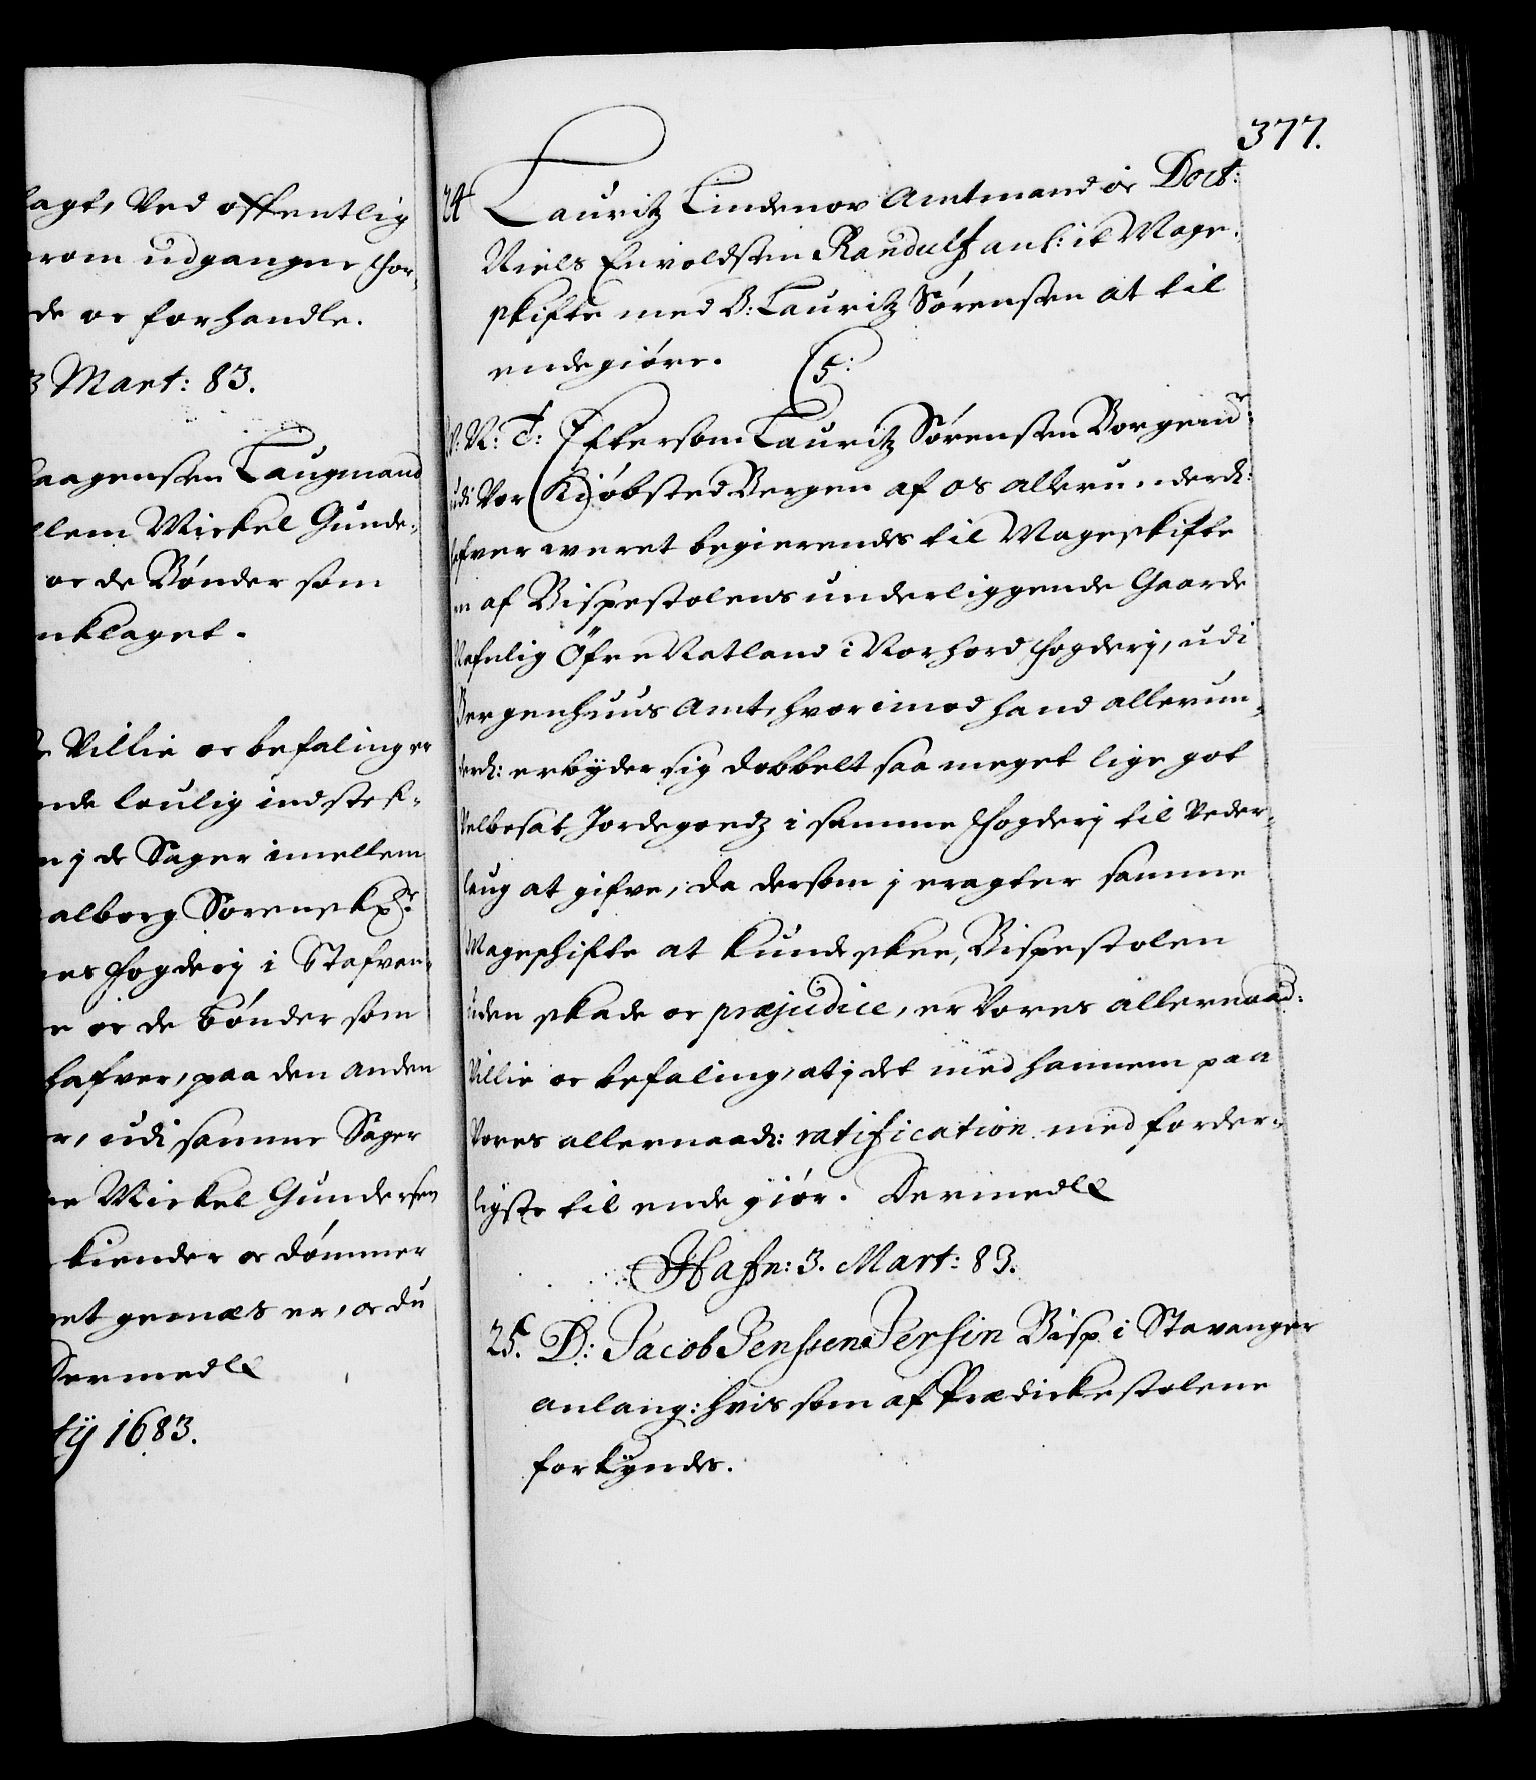 lagt, Ved offentlig
erom udgangne for-
de oc forhandle.
3 Mart: 83.
aagensen Laugmand
llem Mickel Gunde-
oc de Bønder som
nklaget.
Villie oc befaling er
nde loulig indstef-
j de Sager imellem
alborg Sorenskr:
nes fogderj i Stafvan-
oc de bønder som
hafver, paa den anden
r, udi samme Sager
Mickel Gundersen
kiender oc dømmer
et gemæs er, oc du
Dermed
ty 1683.
377.
24 Lauritz Lindenov Amtmand oc Doct:
Niels Envoldsen Randulf anl: it Mage-
skifte med B: Lauritz Sørensen at til
endegiøre. C5:
V: N: T: Eftersom Lauritz Sørensen Borger
udi Vor Kiøbsted Bergen af os allerunderd:
hafver weret begierendes til Mageskifte
en af Bispestolens underliggende Gaarde
Nafnlig Öfre Natland i Norhord fogderj, udi
Bergenhuus Amt, hvorimod hand allerun-
derd: erbyder sig dobbelt saa meget lige got
Velbesat Jordegodz i samme fogderj til Veder-
laug at gifve, da dersom j eragter samme
Mageschifte at kunde skee, Bispestolen
uden skade oc præjudice, er Vores allernaad:
Villie oc befaling, at j det med hannem paa
Vores allernaad: ratification med forder-
ligste til ende giør. Dermed
Hafn: 3. Mart: 83.
25. D: Jacob Jenssen Jersin Bisp i Stavanger
anlang: hvis som af Prædickestolene
forkyndes.